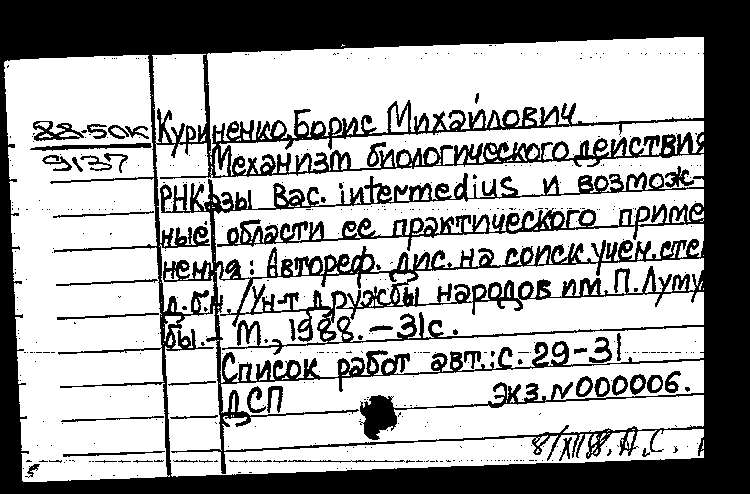 88-50к
9137
Куриненко, Борис Михайлович.
Механизм биологического действия
РНКазы Bac. intermedius и возмож-
ные области ее практического приме
нения: Автореф. дис. на соиск. учен. сте
д.б.н. /Ун-т дружбы народов им. П. Луму
бы. - М., 1988. - 31с.
Список работ авт.: с. 29-31.
ДСП Экз. N000006.
8/XII 88. А.С.